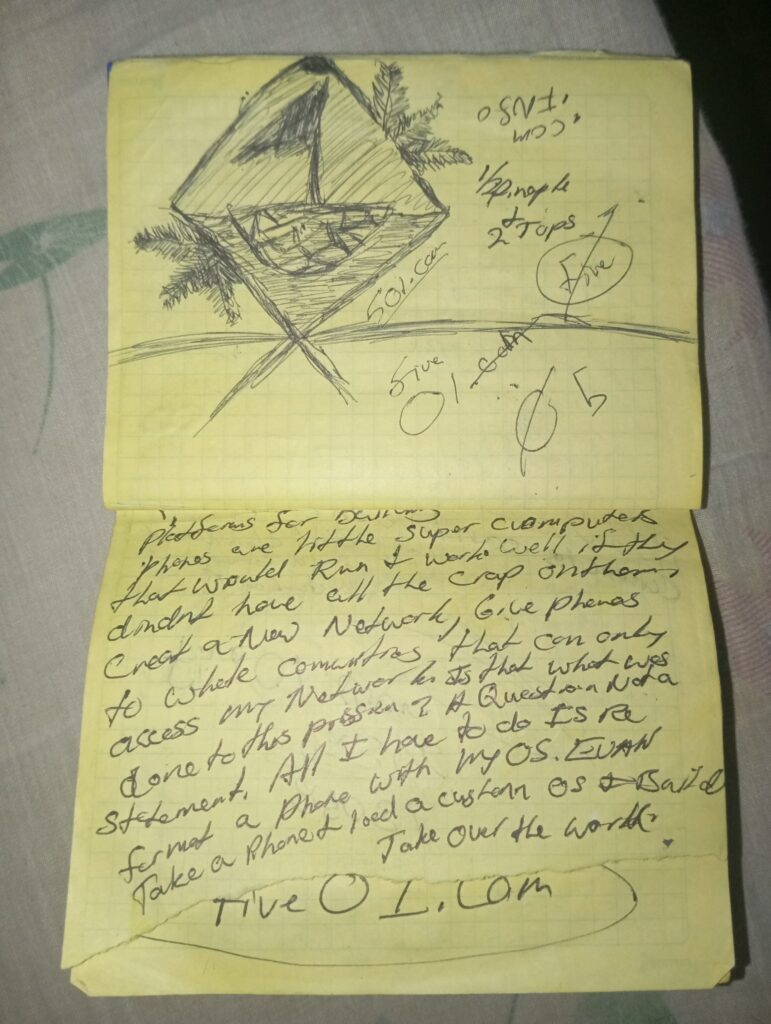 .com
INFO
1/2 Pinaple
& 2 Taps
Five
501.com
Five
01.com
05
Platforms for
Phones are little super cumputers
that would Run & work well if they
didnt have all the crap on them
Creat a New Network, Give phenos
to whole comunitys that can only
access my Network. Is that what was
done to this prission? A Question Not a
Statement. All I have to do Is Re
format a Phone with my OS. EVAN
Take a Phone & load a custom OS & Build
Take over the world.
Five 01.com